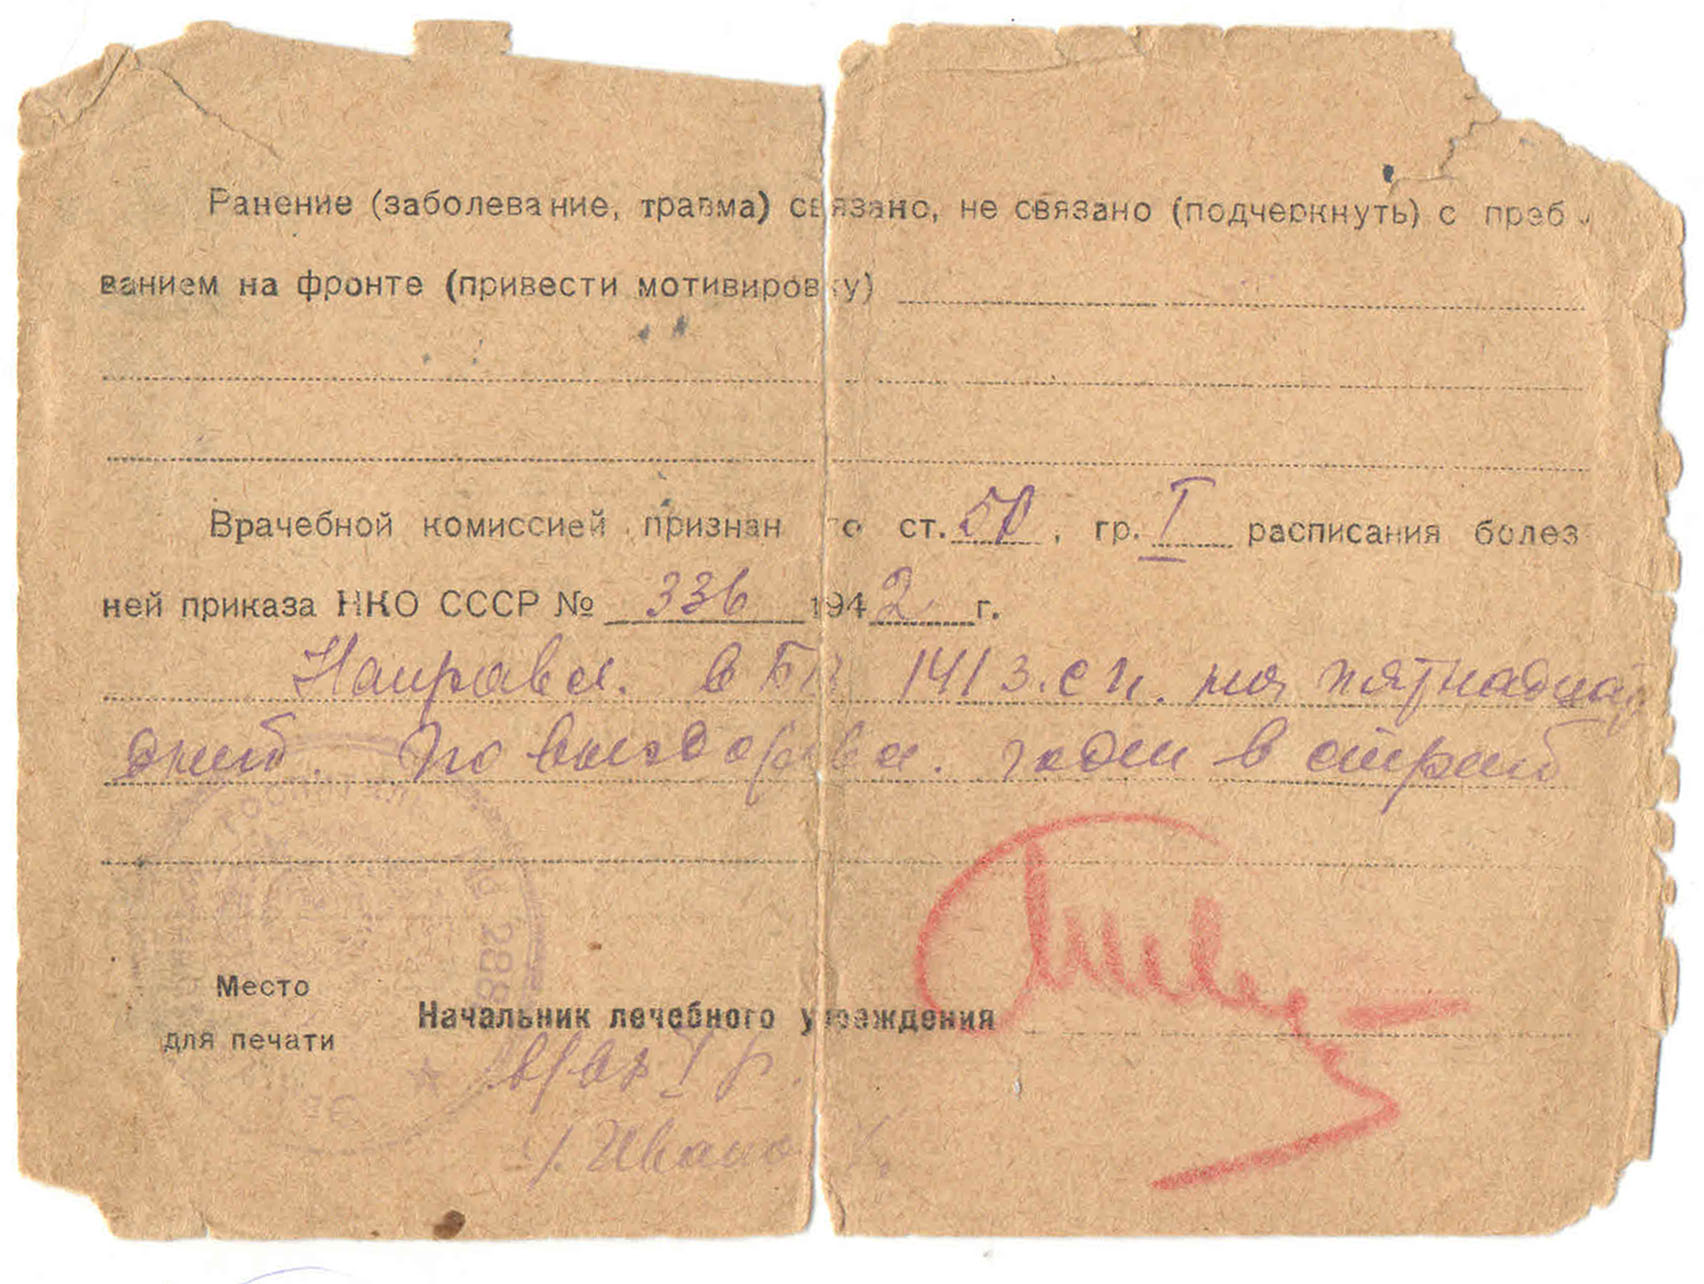 Ранение (заболевание, травма) связано, не связано (подчеркнуть) с преб
ванием на фронте (привести мотивировку)
Врачебной комиссией признан по ст. 50, гр. I расписания болез
ней приказа НКО СССР № 336 1942 г.
Направл. в БП 1413 с п. на пятнадцат
дней. По выздоровл. годен в строй
№ 288
Место
для печати
Начальник лечебного учреждения